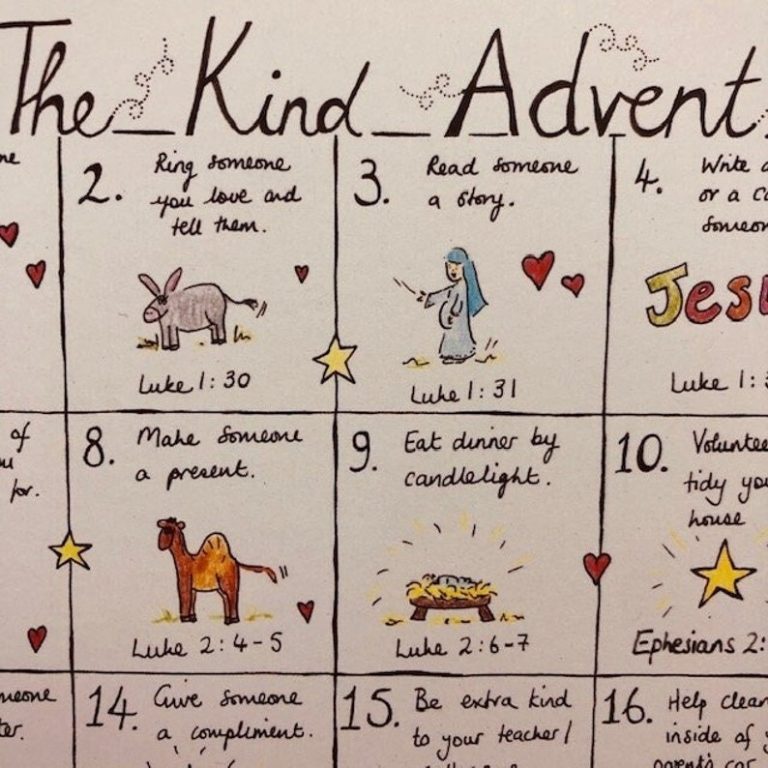 The Kind Advent
2. Ring someone
you love and
tell them.
Luke 1:30
3. Read someone
a story.
Luke 1:31
4. Write
or a
Jesu
Luke 1:3
of
for.
8. Make someone
a present.
Luke 2:4-5
9. Eat dinner by
candlelight.
Luke 2:6-7
10. Voluntee
tidy you
house
Ephesians 2:
14. Give someone
a compliment.
15. Be extra kind
to your teacher/
16. Help clean
inside of y
parent's car